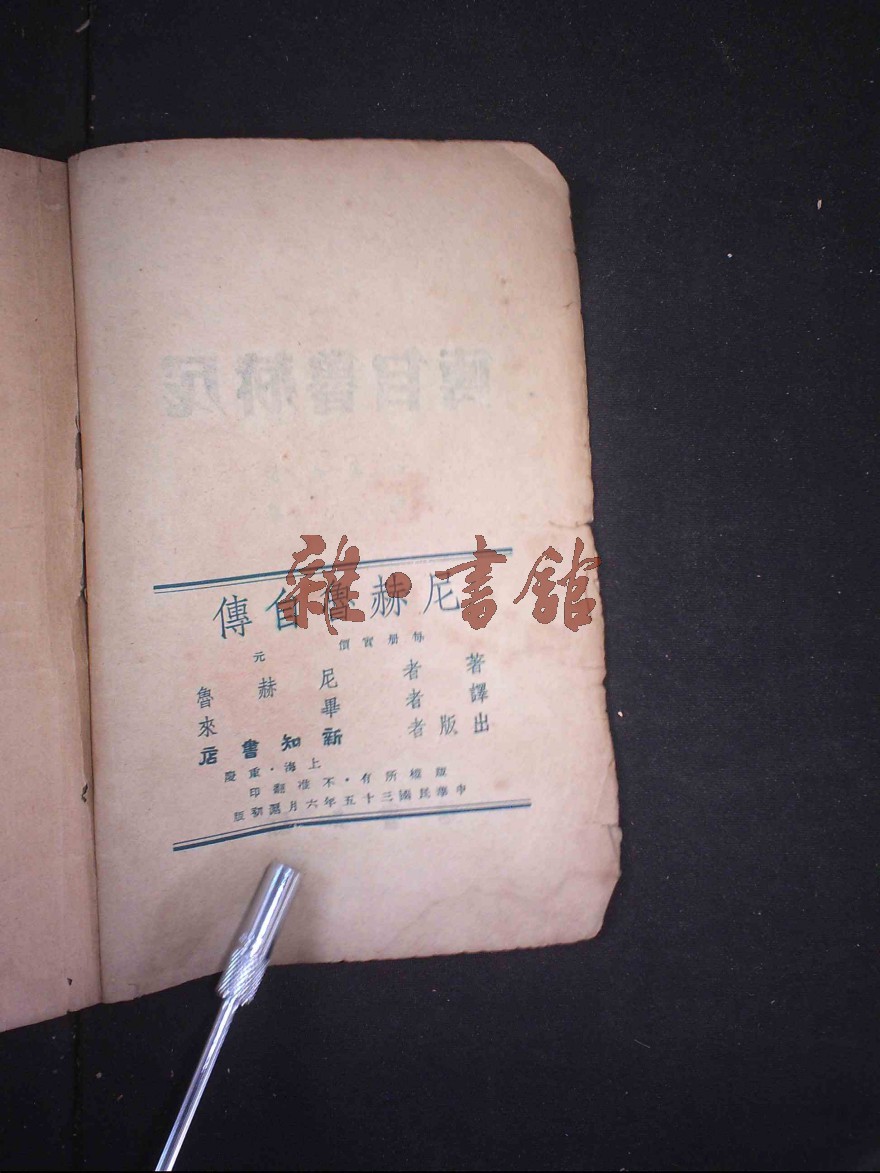 雜·書館
尼赫魯自傳
每册實價 元
著者 尼赫魯
譯者 畢來
出版者 新知書店
上海·重慶
版權所有·不准翻印
中華民國三十五年六月滬初版
尼赫魯自傳